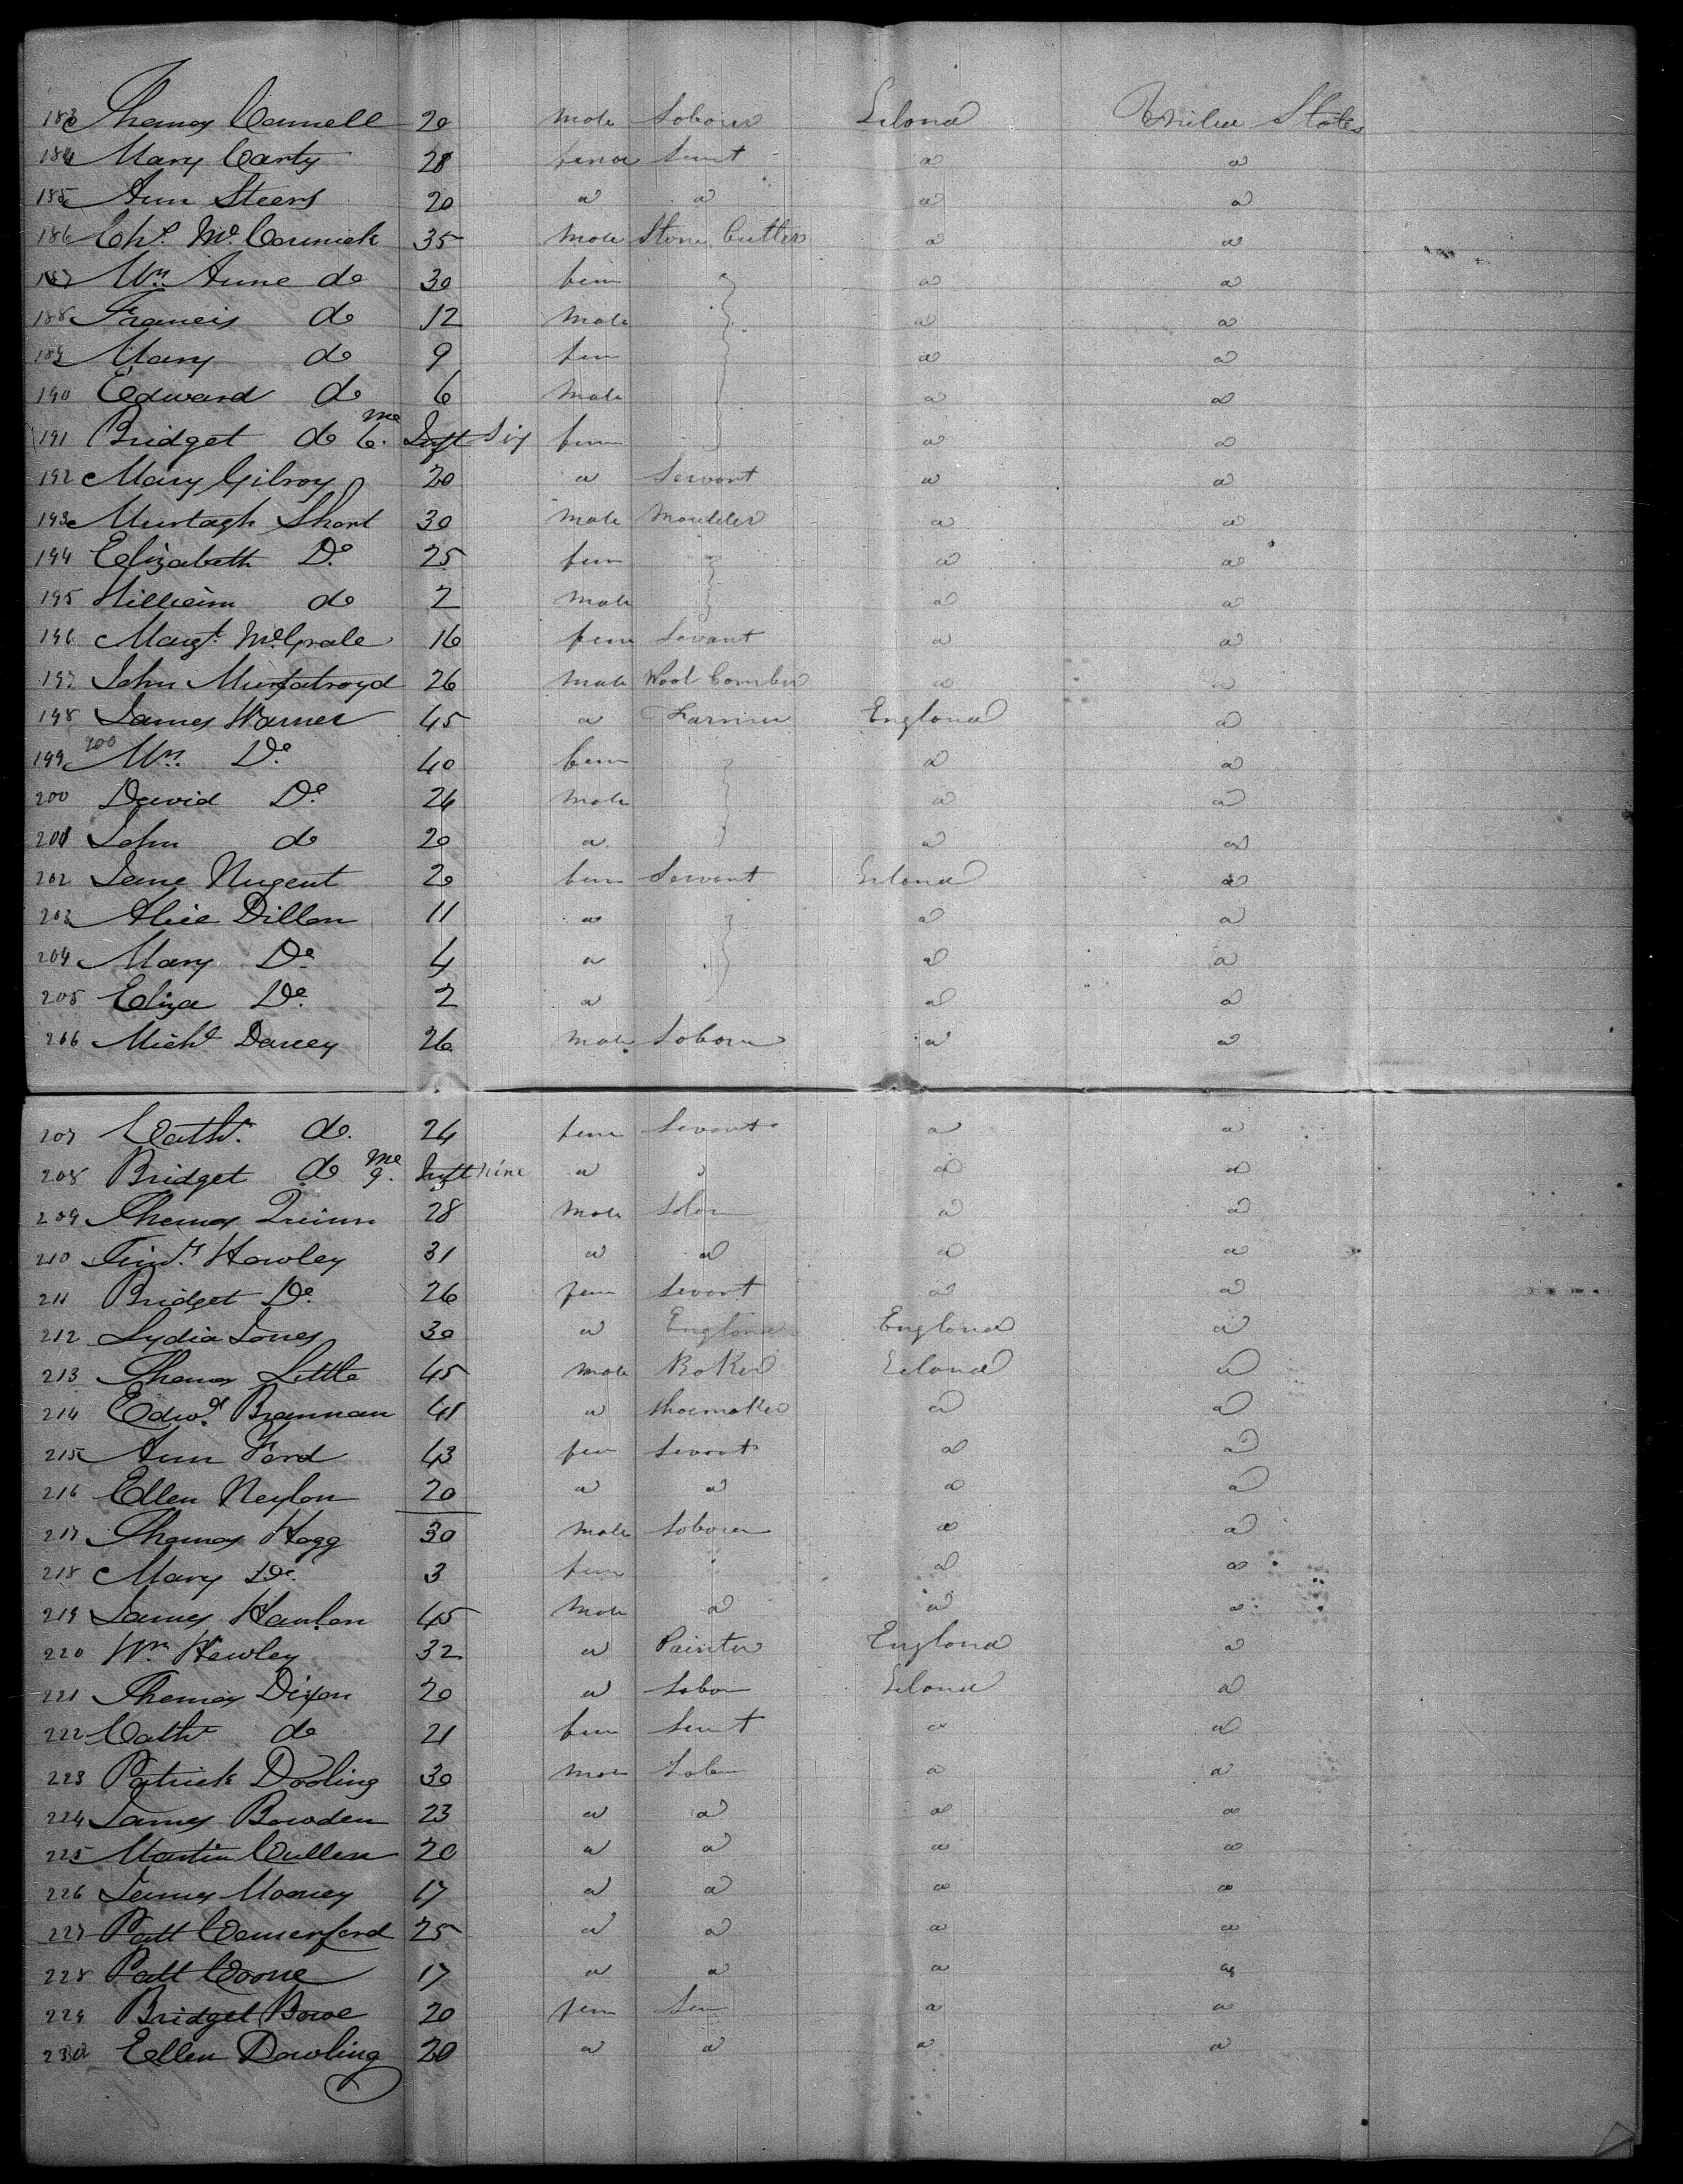 183 Thomas Connell 20 male Laborer Ireland United States
184 Mary Carty 28 female Servt do do
185 Ann Steers 20 do do do do
186 Chs. McCormick 35 male Stone Cutter do do
187 Mrs. Anne do 30 fem do do
188 Francis do 12 male do do
189 Mary do 9 fem do do
190 Edward do 6 male do do
191 Bridget do 6. mo Inft Six fem do do
192 Mary Gilroy 20 do Servant do do
193 Murtagh Short 30 male Moulder do do
194 Elizabeth Do. 25 fem do do
195 William do 2 male do do
196 Margt. McGrale 16 fem Servant do do
197 John Murgatroyd 26 male Wool Comber do do
198 James Warner 45 do Farmer England do
199 200 Mrs. Do. 40 fem do do
200 David Do. 24 male do do
201 John do 20 do do do
202 Jane Nugent 20 fem Servant Ireland do
203 Alice Dillon 11 do do do
204 Mary Do. 4 do do do
205 Eliza Do. 2 do do do
206 Michl Darcey 26 male Laborer do do
207 Cathr. do. 24 fem Servant do do
208 Bridget do 9. mo Inft nine do do do
209 Thomas Quinn 28 male Labr do do
210 Timy. Howley 31 do do do do
211 Bridget Do. 26 fem Servant do do
212 Lydia Jones 30 do England England do
213 Thomas Little 45 male Baker Ireland do
214 Edwd. Brannan 41 do Shoemaker do do
215 Ann Ford 43 fem Servant do do
216 Ellen Neylon 20 do do do do
217 Thomas Hogg 30 male Laborer do do
218 Mary Do. 3 fem do do
219 James Hanlon 45 male do do do
220 Wm. Hewley 32 do Painter England do
221 Thomas Dixon 20 do Labor Ireland do
222 Cathr do 21 fem Servt do do
223 Patrick Dooling 30 male Labr do do
224 James Bowden 23 do do do do
225 Martin Cullen 20 do do do do
226 James Mooney 17 do do do do
227 Patt Comerford 25 do do do do
228 Patt Coone 17 do do do do
229 Bridget Bowe 20 fem Ser do do
230 Ellen Dowling 20 do do do do